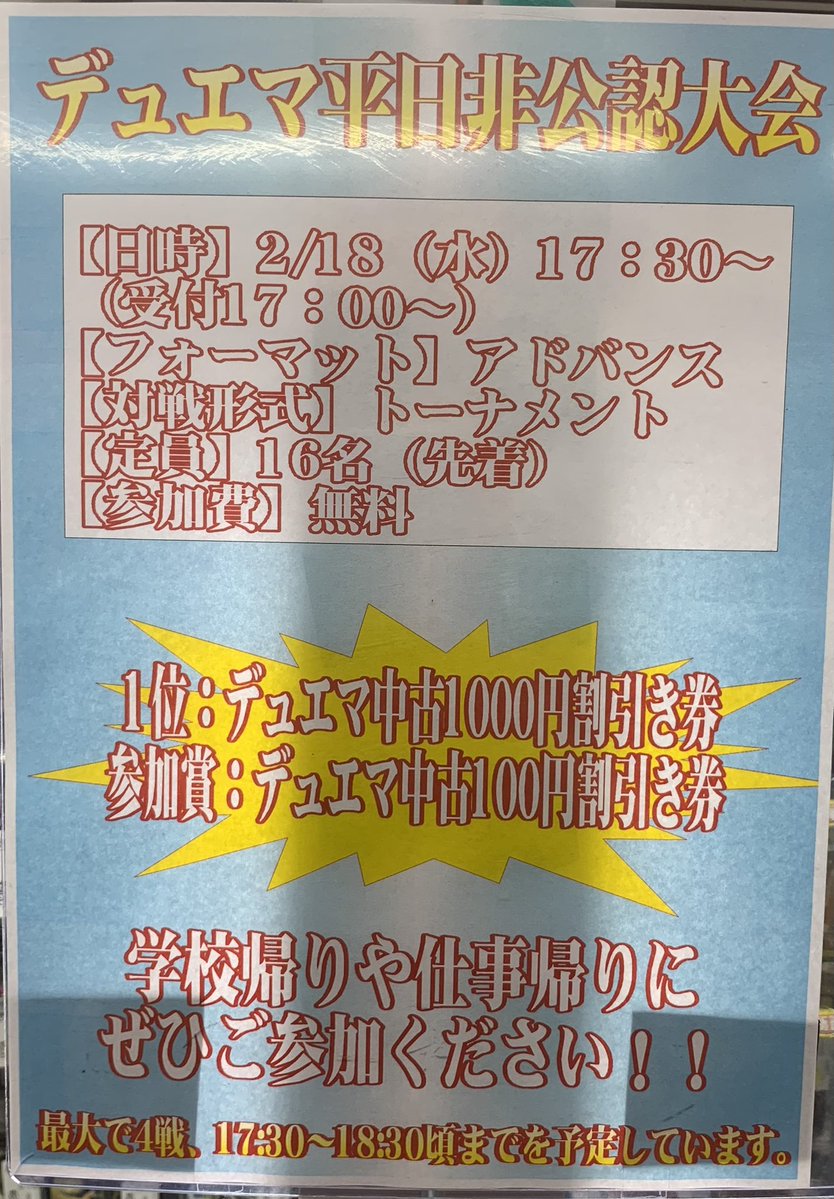 デュエマ平日非公認大会
【日時】2/18（水）17：30～
（受付17：00～）
【フォーマット】アドバンス
【対戦形式】トーナメント
【定員】16名（先着）
【参加費】無料
1位：デュエマ中古1000円割引き券
参加賞：デュエマ中古100円割引き券
学校帰りや仕事帰りに
ぜひご参加ください！！
最大で4戦、17:30～18:30頃までを予定しています。